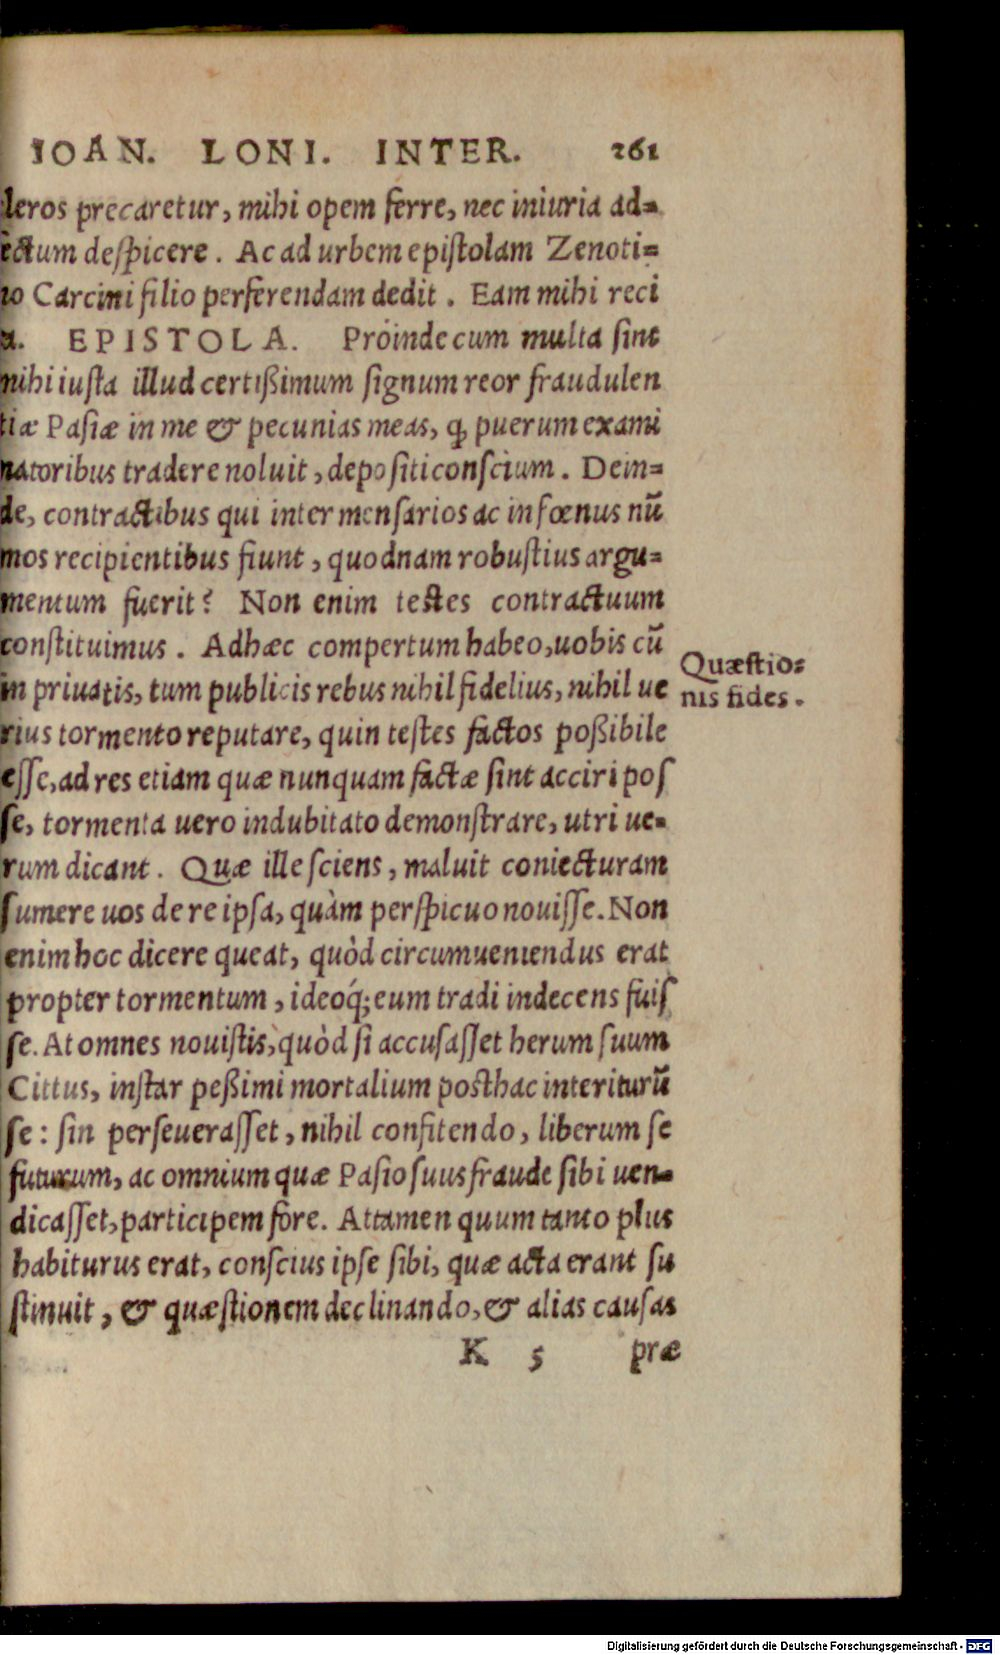 IOAN. LONI. INTER. 261
leros precaretur, mihi opem ferre, nec iniuria ad=
ectum despicere. Ac ad urbem epistolam Zenoti=
Carcini filio perferendam dedit. Eam mihi reci
a. EPISTOLA. Próinde cum multa sint
mihi iusta illud certißimum signum reor fraudulen
tiæ Pasiæ in me & pecunias meas, ꝙ puerum exami
natoribus tradere noluit, depositi conscium. Dein=
de, contractibus qui inter mensarios ac in fœnus nū
mos recipientibus fiunt, quodnam robustius argu=
mentum fuerit? Non enim testes contractuum
constituimus. Adhæc compertum habeo, uobis cū
in priuatis, tum publicis rebus nihil fidelius, nihil ue
rius tormento reputare, quin testes factos poßibile
esse, ad res etiam quæ nunquam factæ sint acciri pos
se, tormenta uero indubitato demonstrare, utri ue=
rum dicant. Quæ ille sciens, maluit coniecturam
sumere uos de re ipsa, quàm perspicuo nouisse. Non
enim hoc dicere queat, quòd circumueniendus erat
propter tormentum, ideoq́; eum tradi indecens fuis
se. At omnes nouistis, quòd si accusasset herum suum
Cittus, instar peßimi mortalium posthac interiturū
se: sin perseuerasset, nihil confitendo, liberum se
futurum, ac omnium quæ Pasio suus fraude sibi uen=
dicasset, participem fore. Attamen quum tanto plus
habiturus erat, conscius ipse sibi, quæ acta erant su
stinuit, & quæstionem declinando, & alias causas
K 5 præ
Quæstio=
nis fides.
Digitalisierung gefördert durch die Deutsche Forschungsgemeinschaft - DFG